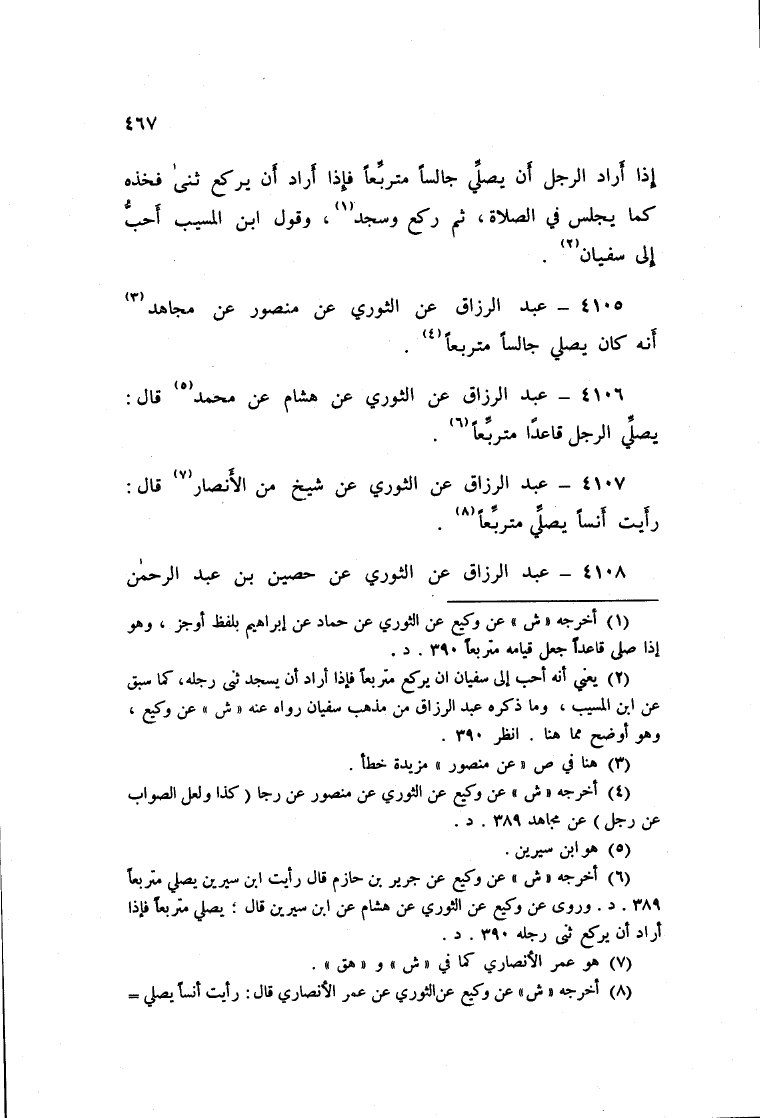 ٤٦٧
إذا أَراد الرجل أَن يصلِّي جالساً متربِّعاً فإذا أَراد أَن يركع ثنىٰ فخذه
كما يجلس في الصلاة ، ثم ركع وسجد(١) ، وقول ابن المسيب أَحبُّ
إلى سفيان(٢) .
٤١٠٥ – عبد الرزاق عن الثوري عن منصور عن مجاهد(٣)
أَنه كان يصلي جالساً متربعاً(٤) .
٤١٠٦ – عبد الرزاق عن الثوري عن هشام عن محمد(٥) قال :
يصلِّي الرجل قاعدًا متربِّعاً(٦) .
٤١٠٧ – عبد الرزاق عن الثوري عن شيخ من الأَنصار(٧) قال :
رأَيت أَنساً يصلِّي متربِّعاً(٨) .
٤١٠٨ – عبد الرزاق عن الثوري عن حصين بن عبد الرحمٰن
(١) أخرجه « ش » عن وكيع عن الثوري عن حماد عن إبراهيم بلفظ أوجز ، وهو
إذا صلى قاعداً جعل قيامه متربعاً ٣٩٠ . د .
(٢) يعني أنه أحب إلى سفيان ان يركع متربعاً فإذا أراد أن يسجد ثنى رجله، كما سبق
عن ابن المسيب ، وما ذكره عبد الرزاق من مذهب سفيان رواه عنه « ش » عن وكيع ،
وهو أوضح مما هنا . انظر ٣٩٠ .
(٣) هنا في ص « عن منصور » مزيدة خطأ .
(٤) أخرجه « ش » عن وكيع عن الثوري عن منصور عن رجا ( كذا ولعل الصواب
عن رجل ) عن مجاهد ٣٨٩ . د .
(٥) هو ابن سيرين .
(٦) أخرجه « ش » عن وكيع عن جرير بن حازم قال رأيت ابن سيرين يصلي متربعاً
٣٨٩ . د . وروى عن وكيع عن الثوري عن هشام عن ابن سيرين قال : يصلي متربعاً فإذا
أراد أن يركع ثنى رجله ٣٩٠ . د .
(٧) هو عمر الأنصاري كما في « ش » و « هق » .
(٨) أخرجه « ش » عن وكيع عن الثوري عن عمر الأنصاري قال : رأيت أنساً يصلي =